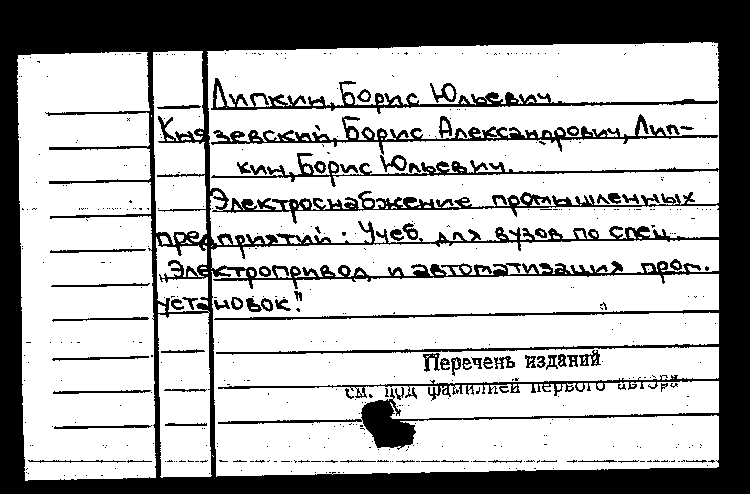 Липкин, Борис Юльевич.
Князевский, Борис Александрович, Лип-
кин, Борис Юльевич.
Электроснабжение промышленных
предприятий : Учеб. для вузов по спец.
„Электропривод и автоматизация пром.
установок."
Перечень изданий
см. под фамилией первого автора